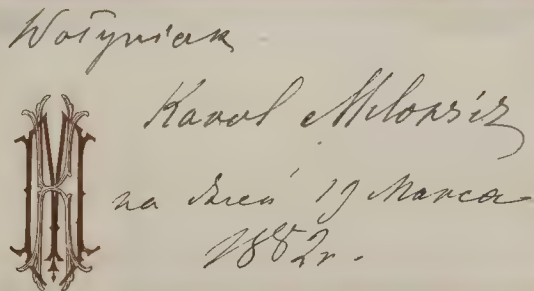 Wołyniak
Karol Milowicz
na dzień 19 Marca
1882r.